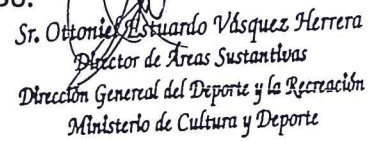 Sr. Ottoniel Estuardo Vásquez Herrera
Director de Áreas Sustantivas
Dirección General del Deporte y la Recreación
Ministerio de Cultura y Deporte